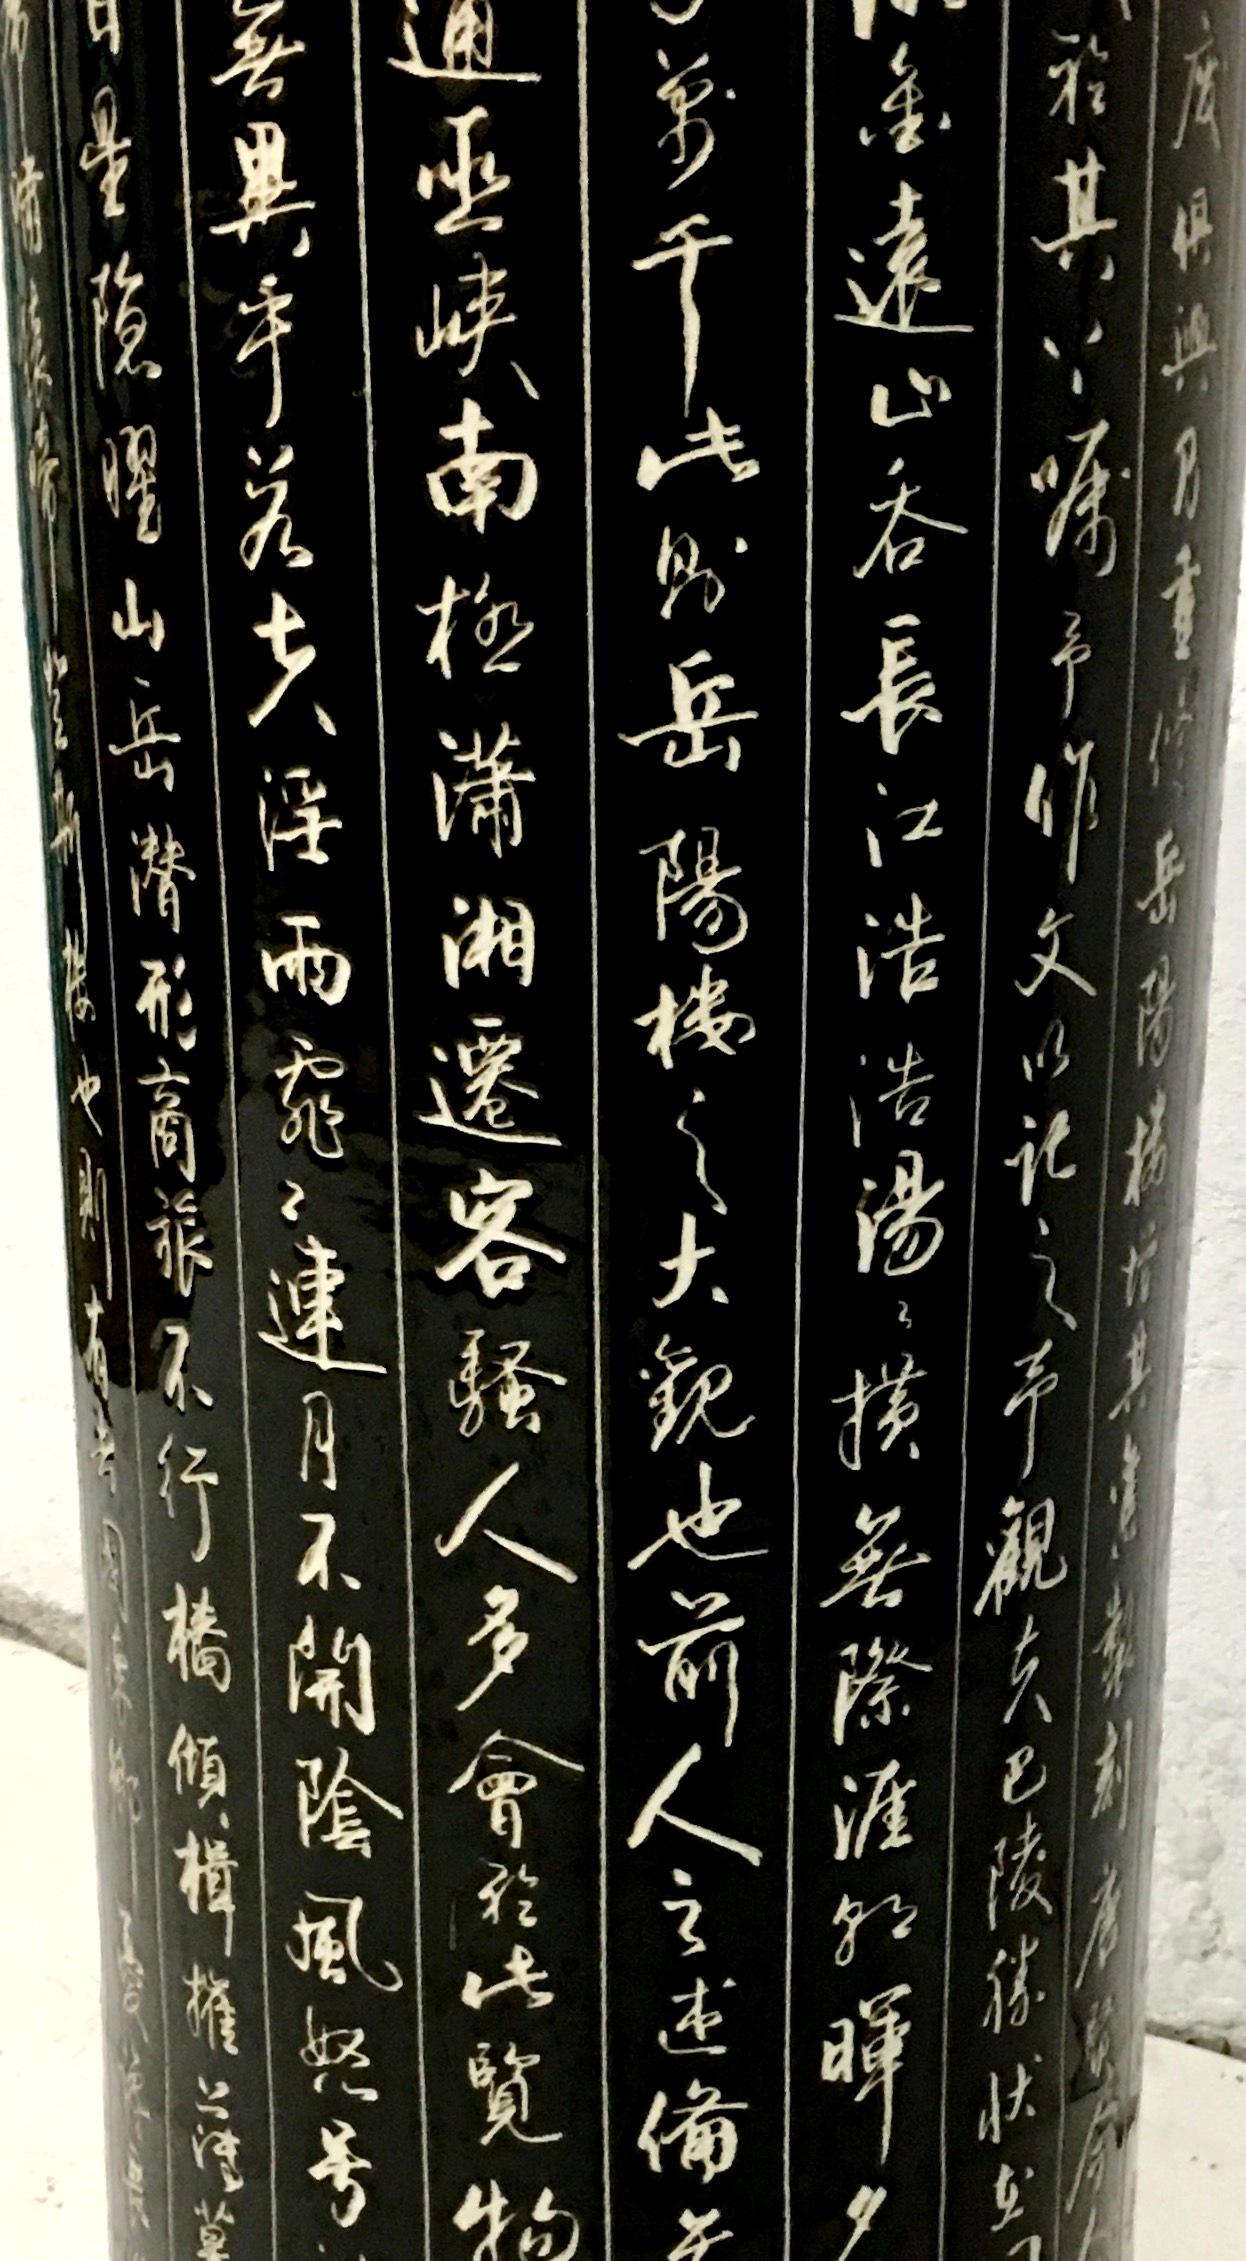 廢俱興乃重修岳陽樓增其舊製刻唐賢今人
於其上囑予作文以記之予觀夫巴陵勝狀在
銜遠山吞長江浩浩湯〻橫無際涯朝暉夕
萬千此則岳陽樓之大觀也前人之述備矣
通巫峽南極瀟湘遷客騷人多會於此覽物
無異乎若夫淫雨霏〻連月不開陰風怒号
日星隱曜山岳潛形商旅不行檣傾楫摧薄暮
登斯樓也則有去國懷鄉憂讒畏